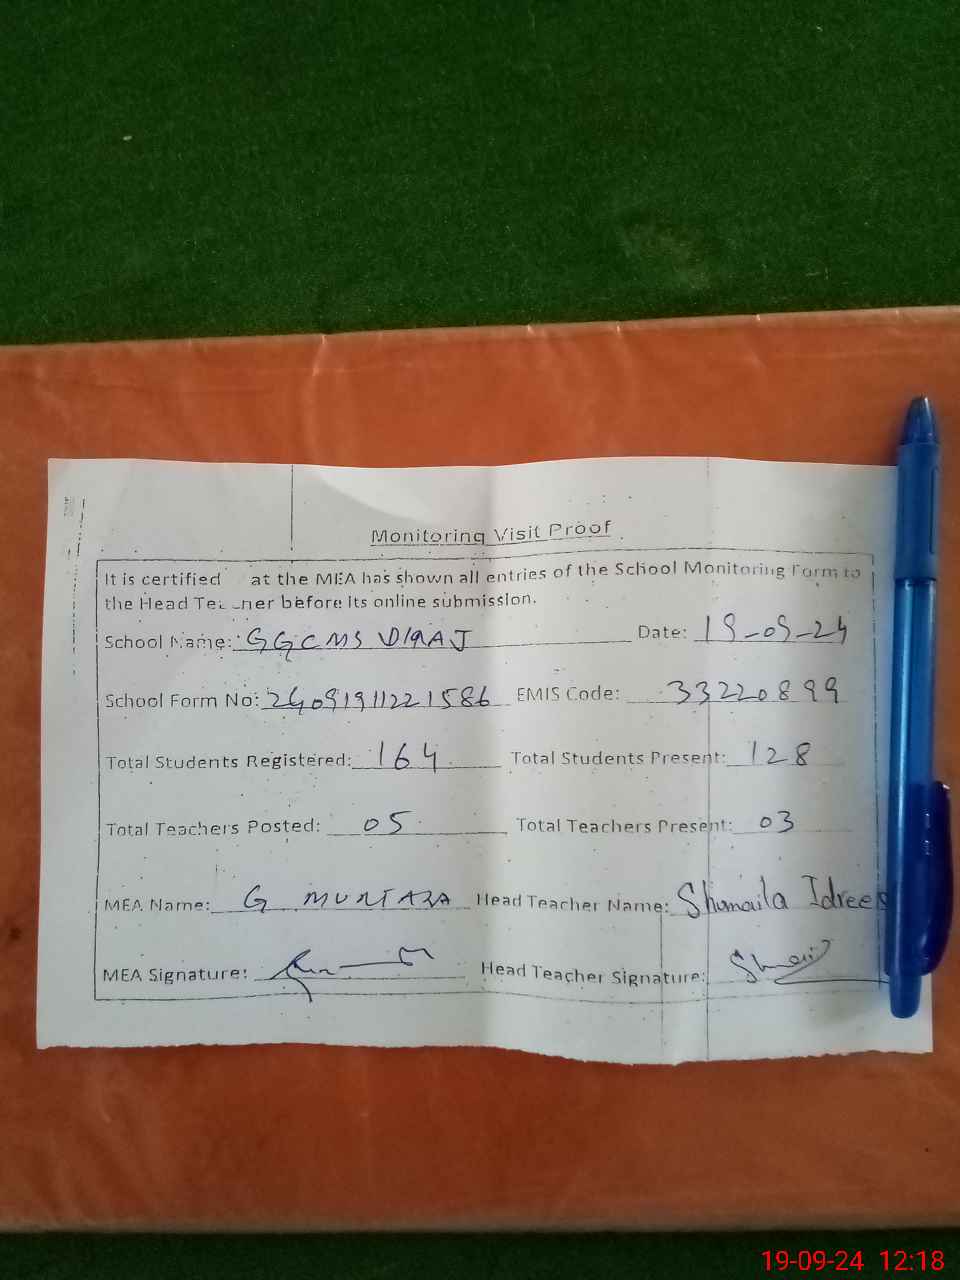 Monitoring Visit Proof
It is certified at the MEA has shown all entries of the School Monitoring Form to
the Head Teacher before its online submission.
School Name: GGCMS Date: 19-09-24
School Form No: 24091911221586 EMIS Code: 33220899
Total Students Registered: 164 Total Students Present: 128
Total Teachers Posted: 05 Total Teachers Present: 03
MEA Name: G MURTAZA Head Teacher Name: Shumaila Idrees
MEA Signature: Head Teacher Signature:
19-09-24 12:18